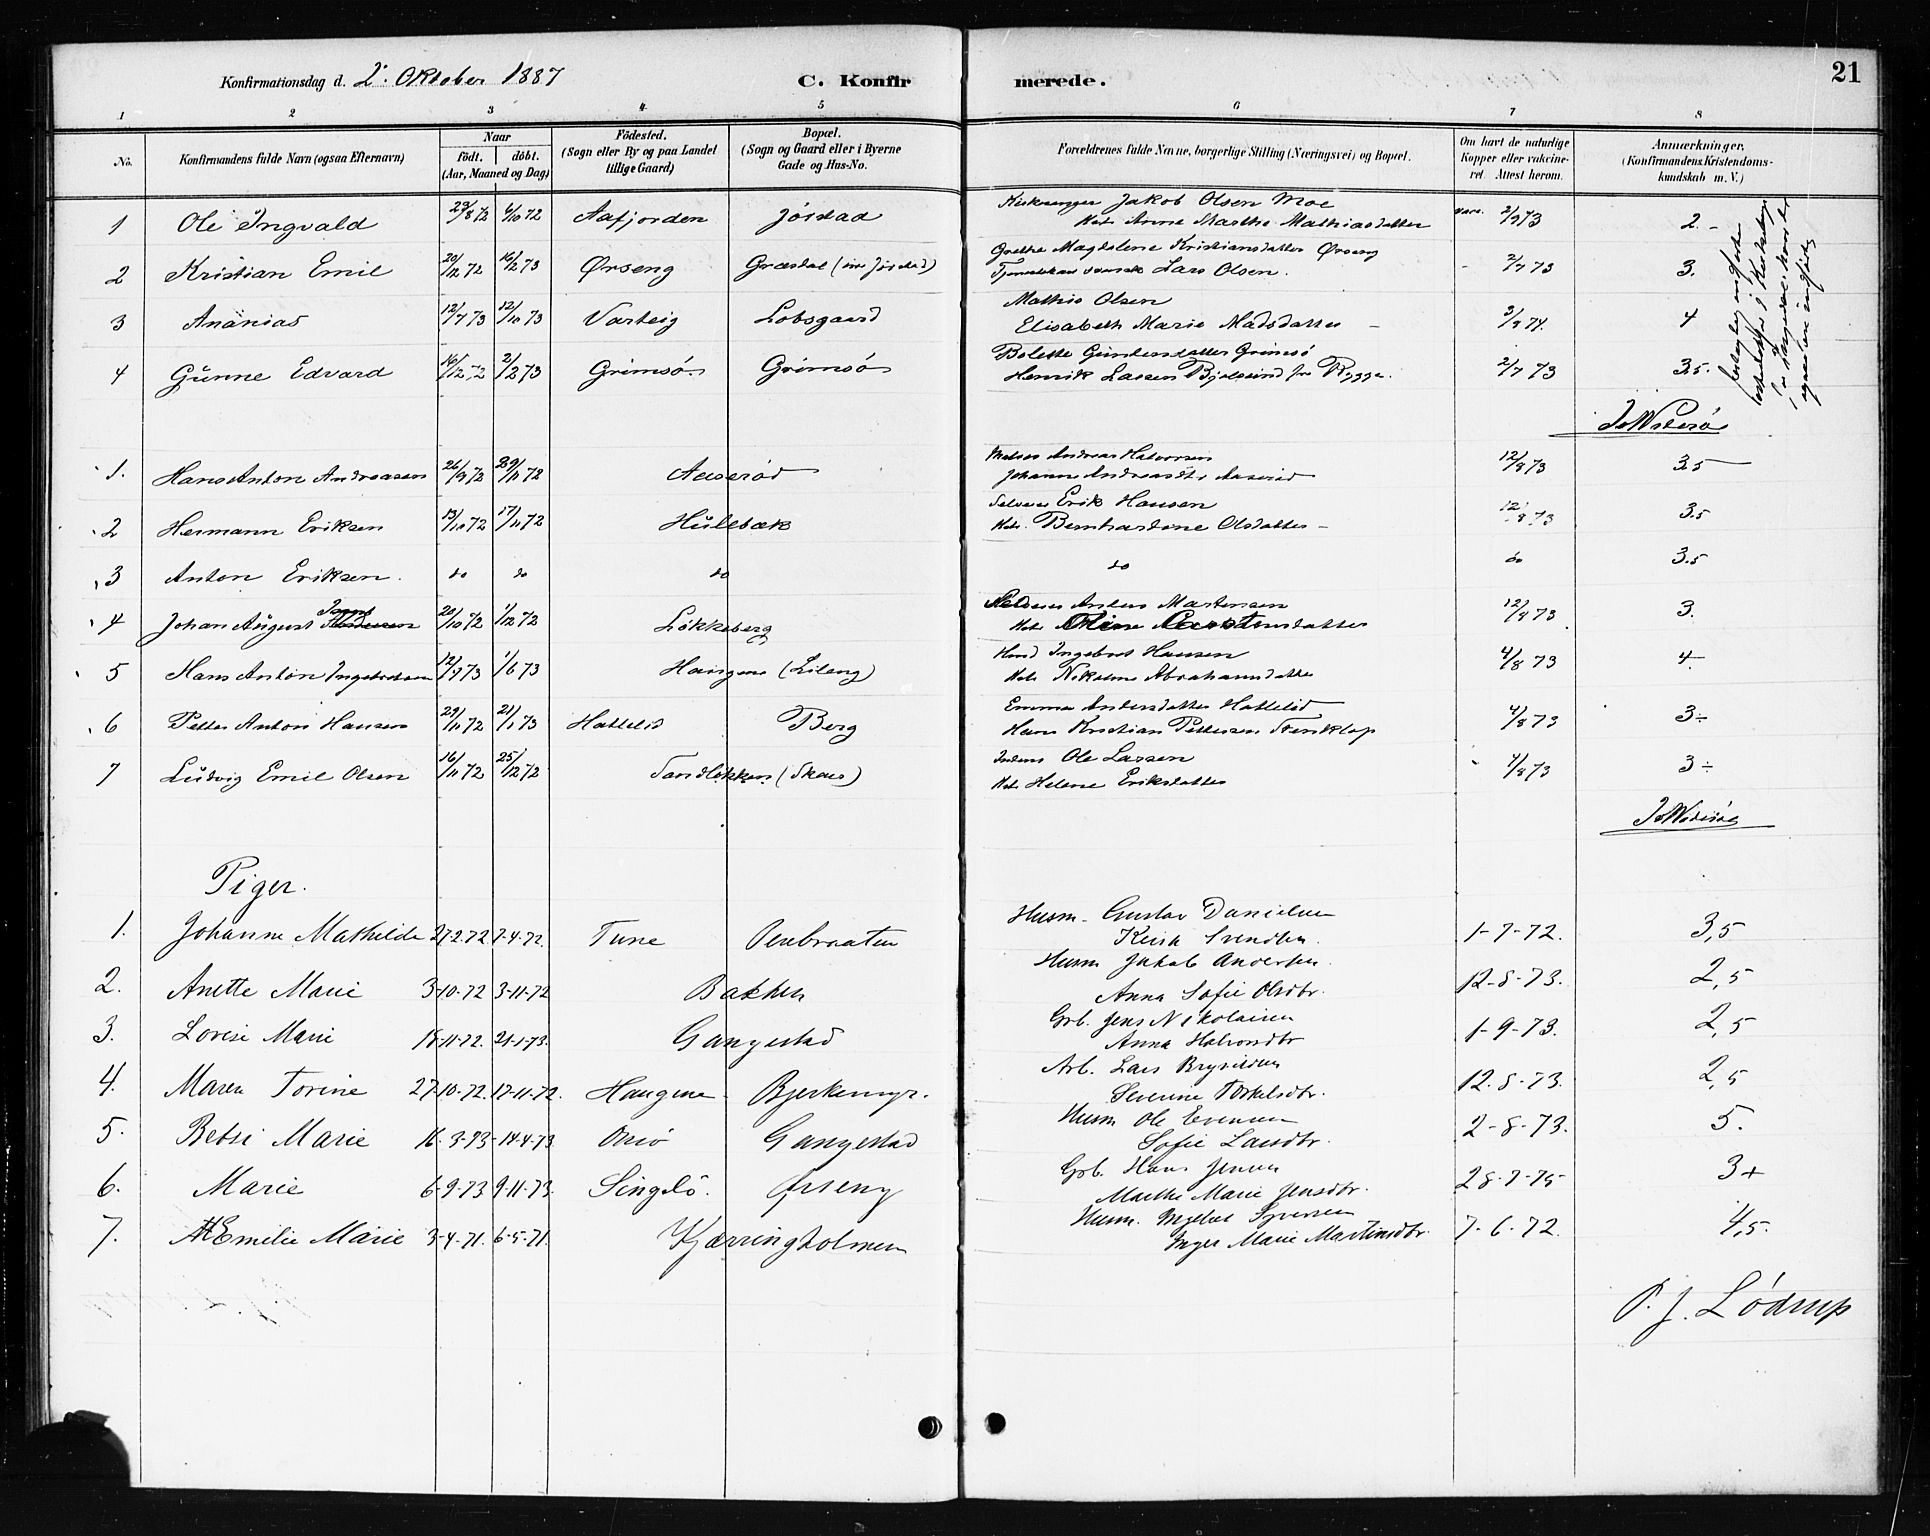 Konfirmationsdag d. 2. Oktober 1887 C. Konfirmerede. 21
1 2 3 4 5 6 7 8
No. Konfirmandens fulde Navn (ogsaa Efternavn) Naar födt. döbt. (Aar, Maaned og Dag) Födested. (Sogn eller By og paa Landet tillige Gaard) Bopæl. (Sogn og Gaard eller i Byerne Gade og Hus-No. Forældrenes fulde Navne, borgerlige Stilling (Næringsvei) og Bopæl. Om havt de naturlige Kopper eller vakcineret. Attest herom. Anmærkninger. (Konfirmandens Kristendomskundskab m. V.)
1 Ole Ingvald 23/8 72 6/10 72 Aafjorden Jörstad Kirkesanger Jakob Olsen Moe
Anne Marthe Mathiasdatter vacc. 2/9 73 2.-
2 Kristian Emil 20/12 72 16/2 73 Ørseng Græsdal Grethe Magdalene Kristiansdatter Ørseng
Lars Olsen. 2/7 73 3.
3 Ananias 12/7 73 12/10 73 Varteig Lobsgaard Mathis Olsen
Elisabeth Marie Madsdatter 3/9 74. 4
4 Gunne Edvard 16/12 72 2/2 73 Grimsö Grimsö Bolette Gundersdatter Grimsö
Henrik Larsen fra Rygge. 2/7 73 3.5.
1. Hans Anton Andreasen 26/9 72 29/11 72 Aaseröd Andreas Halvorsen
Johanne Aaseröd 12/8 73 3.5
2 Hermann Eriksen 13/10 72 17/11 72 Hulebæk Selveier Erik Hansen
Bernhardine Olsdatter 12/8 73 3.5
3 Anton Eriksen. do do do do do 3.5
4 Johan August 20/10 72 1/12 72 Lökkeberg Selveier Anders Martensen
12/8 73 3.
5 Hans Anton Ingebretsen 12/3 73 1/6 73 Haugene (Lileng) Husm Ingebret Hansen
Abrahamsdatter 4/8 73 4
6 Petter Anton Hansen 29/11 72 21/1 73 Hatteröd Berg Emma Andersdatter
Hans Kristian Pettersen 4/8 73 3÷
7 Ludvig Emil Olsen 16/11 72 25/12 72 Sandlökken (Skaar) Inderst Ole Larsen
Helene Eriksdatter 4/8 73 3÷
Piger.
1. Johanne Mathilde 27-2-72 7-4-72. Tune Husm. Gustav Danielsen
1-7-72. 3,5
2. Anette Marie 3-10-72 3-11-72 Bakken Husm Jakob Andersen.
Anna Sofie Olsdtr. 12-8-73. 2,5
3. Lovise Marie 18-11-72. 21-1-73. Gangestad Grb. Jens Nikolaisen
Anna Halvorsdtr 1-9-73. 2,5
4. Maren Torine 27-10-72. 17-11-72. Haugene Bjerkemyr. Arb. Lars
Severine Torkelsdtr. 12-8-73. 2,5
5. Betsi Marie 16-3-73 14-4-73 Onsö Gangestad Husm Ole Evensen
Sofie Larsdtr. 2-8-73. 5.
6. Marie 6-9-73 9-11-73. Singelö. Ørseng Grb. Hans Jensen
Marthe Marie Jensdtr. 28-7-75 3+
7. Emilie Marie 3-4-71. 6-5-71. Kjærringholmen Husm. Ingebret Syversen
Inger Marie Martinsdtr. 7-6-72. 4,5.
P. J. Lödrup